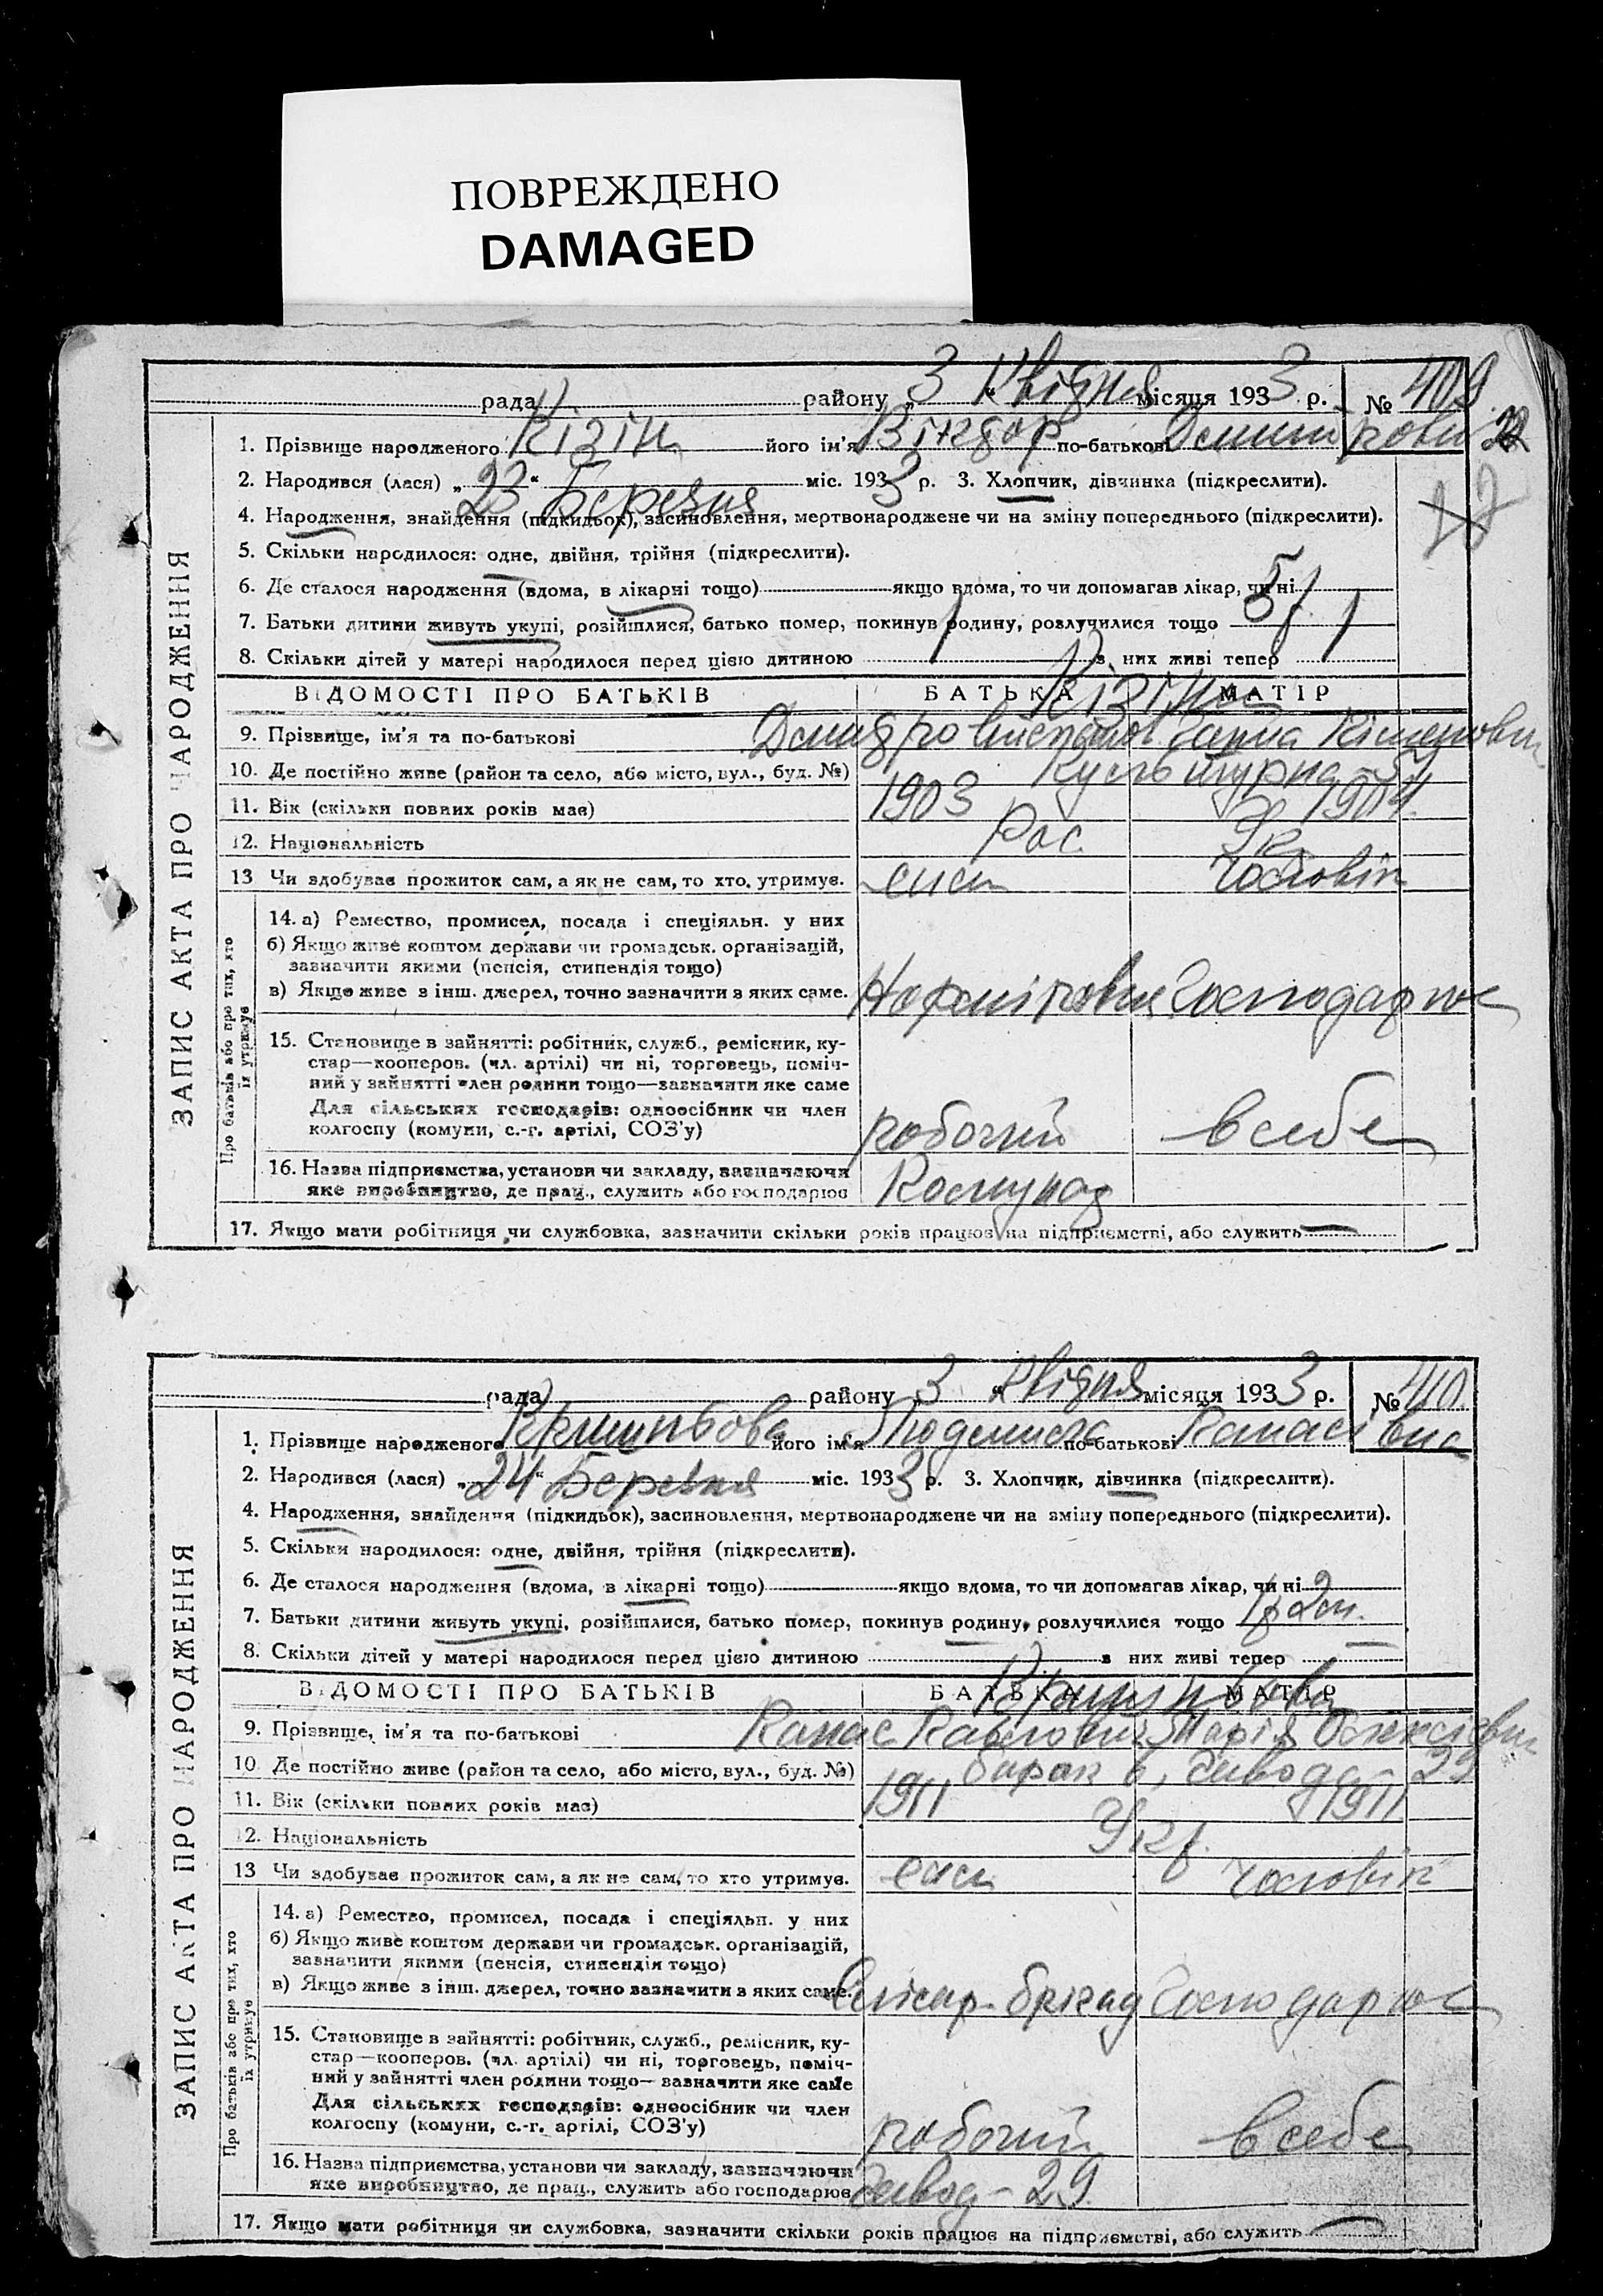 ПОВРЕЖДЕНО
DAMAGED
рада району „3“ Квідня місяця 1933 р. № 409
1. Прізвище народженого Кізін його ім'я Віктор по-батькові
2. Народився (лася) „23“ Березня міс. 1933 р. 3. Хлопчик, дівчинка (підкреслити).
4. Народження, знайдення (підкидьок), засиновлення, мертвонароджене чи на зміну попереднього (підкреслити).
5. Скільки народилося: одне, двійня, трійня (підкреслити).
6. Де сталося народження (вдома, в лікарні тощо) якщо вдома, то чи допомагав лікар, чи ні
7. Батьки дитини живуть укупі, розійшлися, батько помер, покинув родину, розлучилися тощо 5/
8. Скільки дітей у матері народилося перед цією дитиною 1 з них живі тепер 1
ВІДОМОСТІ ПРО БАТЬКІВ БАТЬКА МАТІР
9. Прізвище, ім'я та по-батькові
10. Де постійно живе (район та село, або місто, вул., буд. №)
11. Вік (скільки повних років має) 1903 1904
12. Національність Рос. Ук.
13 Чи здобуває прожиток сам, а як не сам, то хто утримує. сам чоловік
Про батьків або про тих, хто їх утримує
14. а) Ремество, промисел, посада і спеціяльн. у них
б) Якщо живе коштом держави чи громадськ. організацій,
зазначити якими (пенсія, стипендія тощо)
в) Якщо живе з інш. джерел, точно зазначити з яких саме. Господарює
15. Становище в зайнятті: робітник, служб., ремісник, ку-
стар—кооперов. (чл. артілі) чи ні, торговець, поміч-
ний у зайнятті член родини тощо—зазначити яке саме
Для сільських господарів: одноосібник чи член
колгоспу (комуни, с.-г. артілі, СОЗ'у) робочий в себе
16. Назва підприємства, установи чи закладу, зазначаючи
яке виробництво, де прац., служить або господарює
17. Якщо мати робітниця чи службовка, зазначити скільки років працює на підприємстві, або служить —
ЗАПИС АКТА ПРО НАРОДЖЕННЯ
рада району „3“ Квідня місяця 1933 р. № 410
1. Прізвище народженого його ім'я Людмила по-батькові
2. Народився (лася) „24“ Березня міс. 1933 р. 3. Хлопчик, дівчинка (підкреслити).
4. Народження, знайдення (підкидьок), засиновлення, мертвонароджене чи на зміну попереднього (підкреслити).
5. Скільки народилося: одне, двійня, трійня (підкреслити).
6. Де сталося народження (вдома, в лікарні тощо) якщо вдома, то чи допомагав лікар, чи ні
7. Батьки дитини живуть укупі, розійшлися, батько помер, покинув родину, розлучилися тощо
8. Скільки дітей у матері народилося перед цією дитиною — з них живі тепер —
ВІДОМОСТІ ПРО БАТЬКІВ БАТЬКА МАТІР
9. Прізвище, ім'я та по-батькові Марія
10 Де постійно живе (район та село, або місто, вул., буд. №) барак 6, завода 29
11. Вік (скільки повних років має) 1911 1911
12. Національність Укр.
13 Чи здобуває прожиток сам, а як не сам, то хто утримує. сам чоловік
Про батьків або про тих, хто їх утримує
14. а) Ремество, промисел, посада і спеціяльн. у них
б) Якщо живе коштом держави чи громадськ. організацій,
зазначити якими (пенсія, стипендія тощо)
в) Якщо живе з інш. джерел, точно зазначити з яких саме. Слюсар-бригад Господарює
15. Становище в зайнятті: робітник, служб., ремісник, ку-
стар—кооперов. (чл. артілі) чи ні, торговець, поміч-
ний у зайнятті член родини тощо—зазначити яке саме
Для сільських господарів: одноосібник чи член
колгоспу (комуни, с.-г. артілі, СОЗ'у) робочий в себе
16. Назва підприємства, установи чи закладу, зазначаючи
яке виробництво, де прац., служить або господарює Завод-29
17. Якщо мати робітниця чи службовка, зазначити скільки років працює на підприємстві, або служить —
ЗАПИС АКТА ПРО НАРОДЖЕННЯ